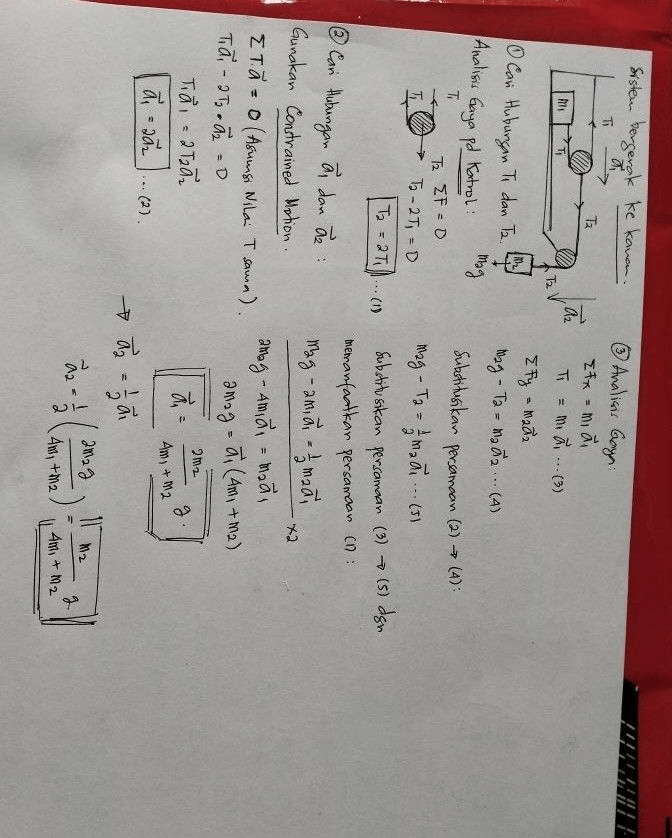 Sistem bergerak ke kanan.
T₁
a⃗₁
m₁
T₁
T₂
T₂
a⃗₂
m₂
m₂g
① Cari Hubungan T₁ dan T₂.
Analisis Gaya pd Katrol:
T₁
T₁
T₂
ΣF = 0
T₂ - 2T₁ = 0
T₂ = 2T₁ ...(1)
② Cari Hubungan a⃗₁ dan a⃗₂ :
Gunakan Constrained Motion.
Σ T.a⃗ = 0 (Asumsi Nilai T sama).
T₁a⃗₁ - 2T₂.a⃗₂ = 0
T₁a⃗₁ = 2T₂a⃗₂
a⃗₁ = 2a⃗₂ ...(2).
③ Analisis Gaya:
ΣFx = m₁a⃗₁
T₁ = m₁a⃗₁ ...(3)
ΣFy = m₂a⃗₂
m₂g - T₂ = m₂a⃗₂ ...(4)
Substitusikan persamaan (2) → (4):
m₂g - T₂ = ½ m₂a⃗₁ ...(5)
Substitusikan persamaan (3) → (5) dgn
memanfaatkan persamaan (1) :
m₂g - 2m₁a⃗₁ = ½ m₂a⃗₁
×2
2m₂g - 4m₁a⃗₁ = m₂a⃗₁
2m₂g = a⃗₁ (4m₁ + m₂)
a⃗₁ = 2m₂/(4m₁ + m₂) g.
→ a⃗₂ = ½ a⃗₁
a⃗₂ = ½ (2m₂g/(4m₁ + m₂)) = m₂/(4m₁ + m₂) g